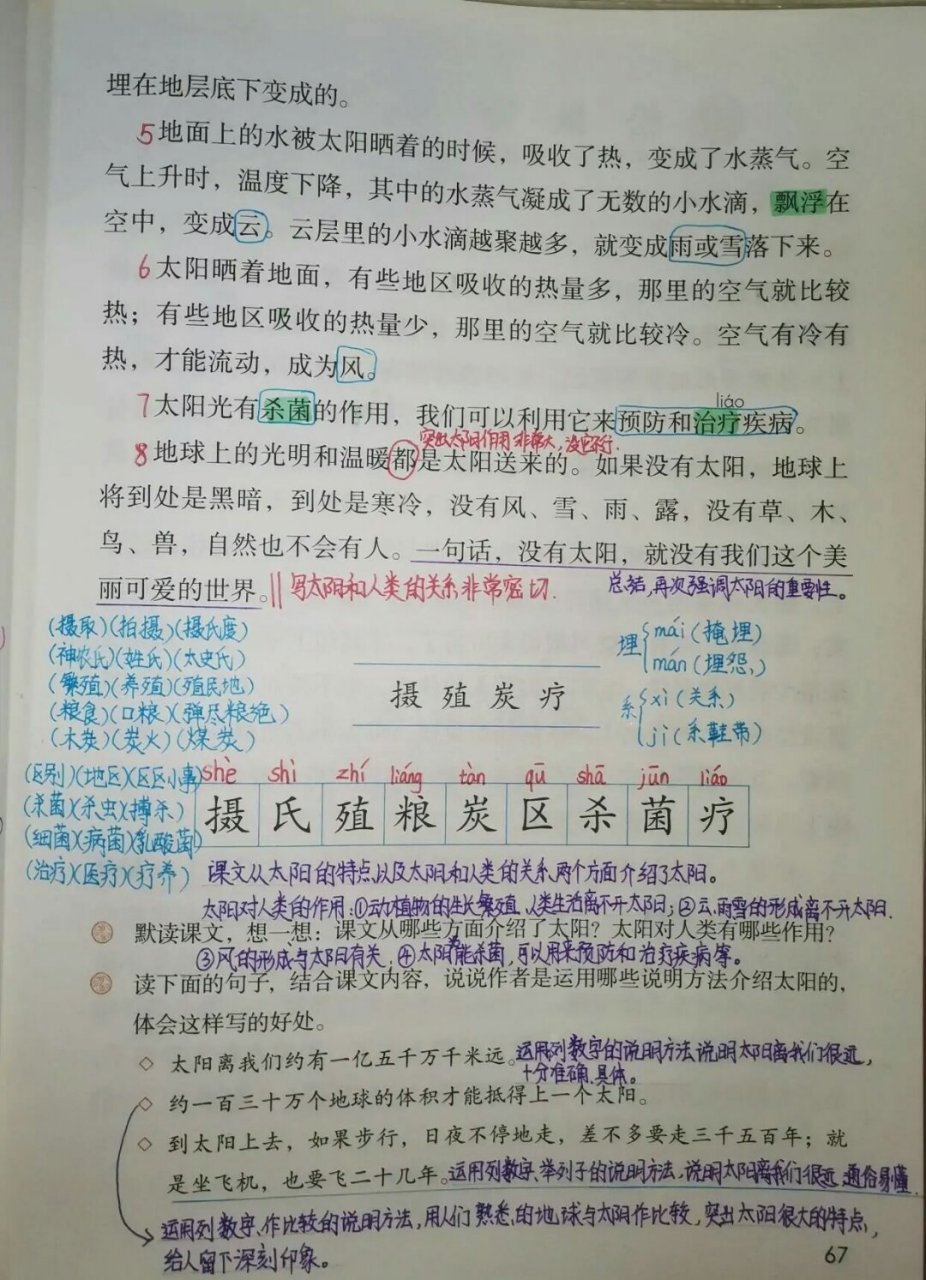 埋在地层底下变成的。
5 地面上的水被太阳晒着的时候，吸收了热，变成了水蒸气。空
气上升时，温度下降，其中的水蒸气凝成了无数的小水滴，飘浮在
空中，变成云。云层里的小水滴越聚越多，就变成雨或雪落下来。
6 太阳晒着地面，有些地区吸收的热量多，那里的空气就比较
热；有些地区吸收的热量少，那里的空气就比较冷。空气有冷有
热，才能流动，成为风。
liáo
7 太阳光有杀菌的作用，我们可以利用它来预防和治疗疾病。
突出太阳作用非常大，没它不行.
8 地球上的光明和温暖都是太阳送来的。如果没有太阳，地球上
将到处是黑暗，到处是寒冷，没有风、雪、雨、露，没有草、木、
鸟、兽，自然也不会有人。一句话，没有太阳，就没有我们这个美
丽可爱的世界。‖写太阳和人类的关系非常密切. 总结，再次强调太阳的重要性。
(摄取)(拍摄)(摄氏度)
(神农氏)(姓氏)(太史氏)
(繁殖)(养殖)(殖民地)
(粮食)(口粮)(弹尽粮绝)
(木炭)(炭火)(煤炭)
摄 殖 炭 疗
埋 mái (掩埋)
mán (埋怨)
系 xì (关系)
jì (系鞋带)
(区别)(地区)(区区小事)
(杀菌)(杀虫)(搏杀)
(细菌)(病菌)(乳酸菌)
(治疗)(医疗)(疗养)
shè shì zhí liáng tàn qū shā jūn liáo
摄 氏 殖 粮 炭 区 杀 菌 疗
课文从太阳的特点以及太阳和人类的关系两个方面介绍了太阳。
太阳对人类的作用：①动植物的生长繁殖、人类生活离不开太阳；②云、雨雪的形成离不开太阳.
默读课文，想一想：课文从哪些方面介绍了太阳？太阳对人类有哪些作用？
③风的形成与太阳有关，④太阳能杀菌，可以用来预防和治疗疾病等。
读下面的句子，结合课文内容，说说作者是运用哪些说明方法介绍太阳的，
体会这样写的好处。
◇ 太阳离我们约有一亿五千万千米远。运用列数字的说明方法说明太阳离我们很远，
十分准确、具体。
◇ 约一百三十万个地球的体积才能抵得上一个太阳。
◇ 到太阳上去，如果步行，日夜不停地走，差不多要走三千五百年；就
是坐飞机，也要飞二十几年。运用列数字、举列子的说明方法，说明太阳离我们很远，通俗易懂.
运用列数字、作比较的说明方法，用人们熟悉的地球与太阳作比较，突出太阳很大的特点，
给人留下深刻印象。
67